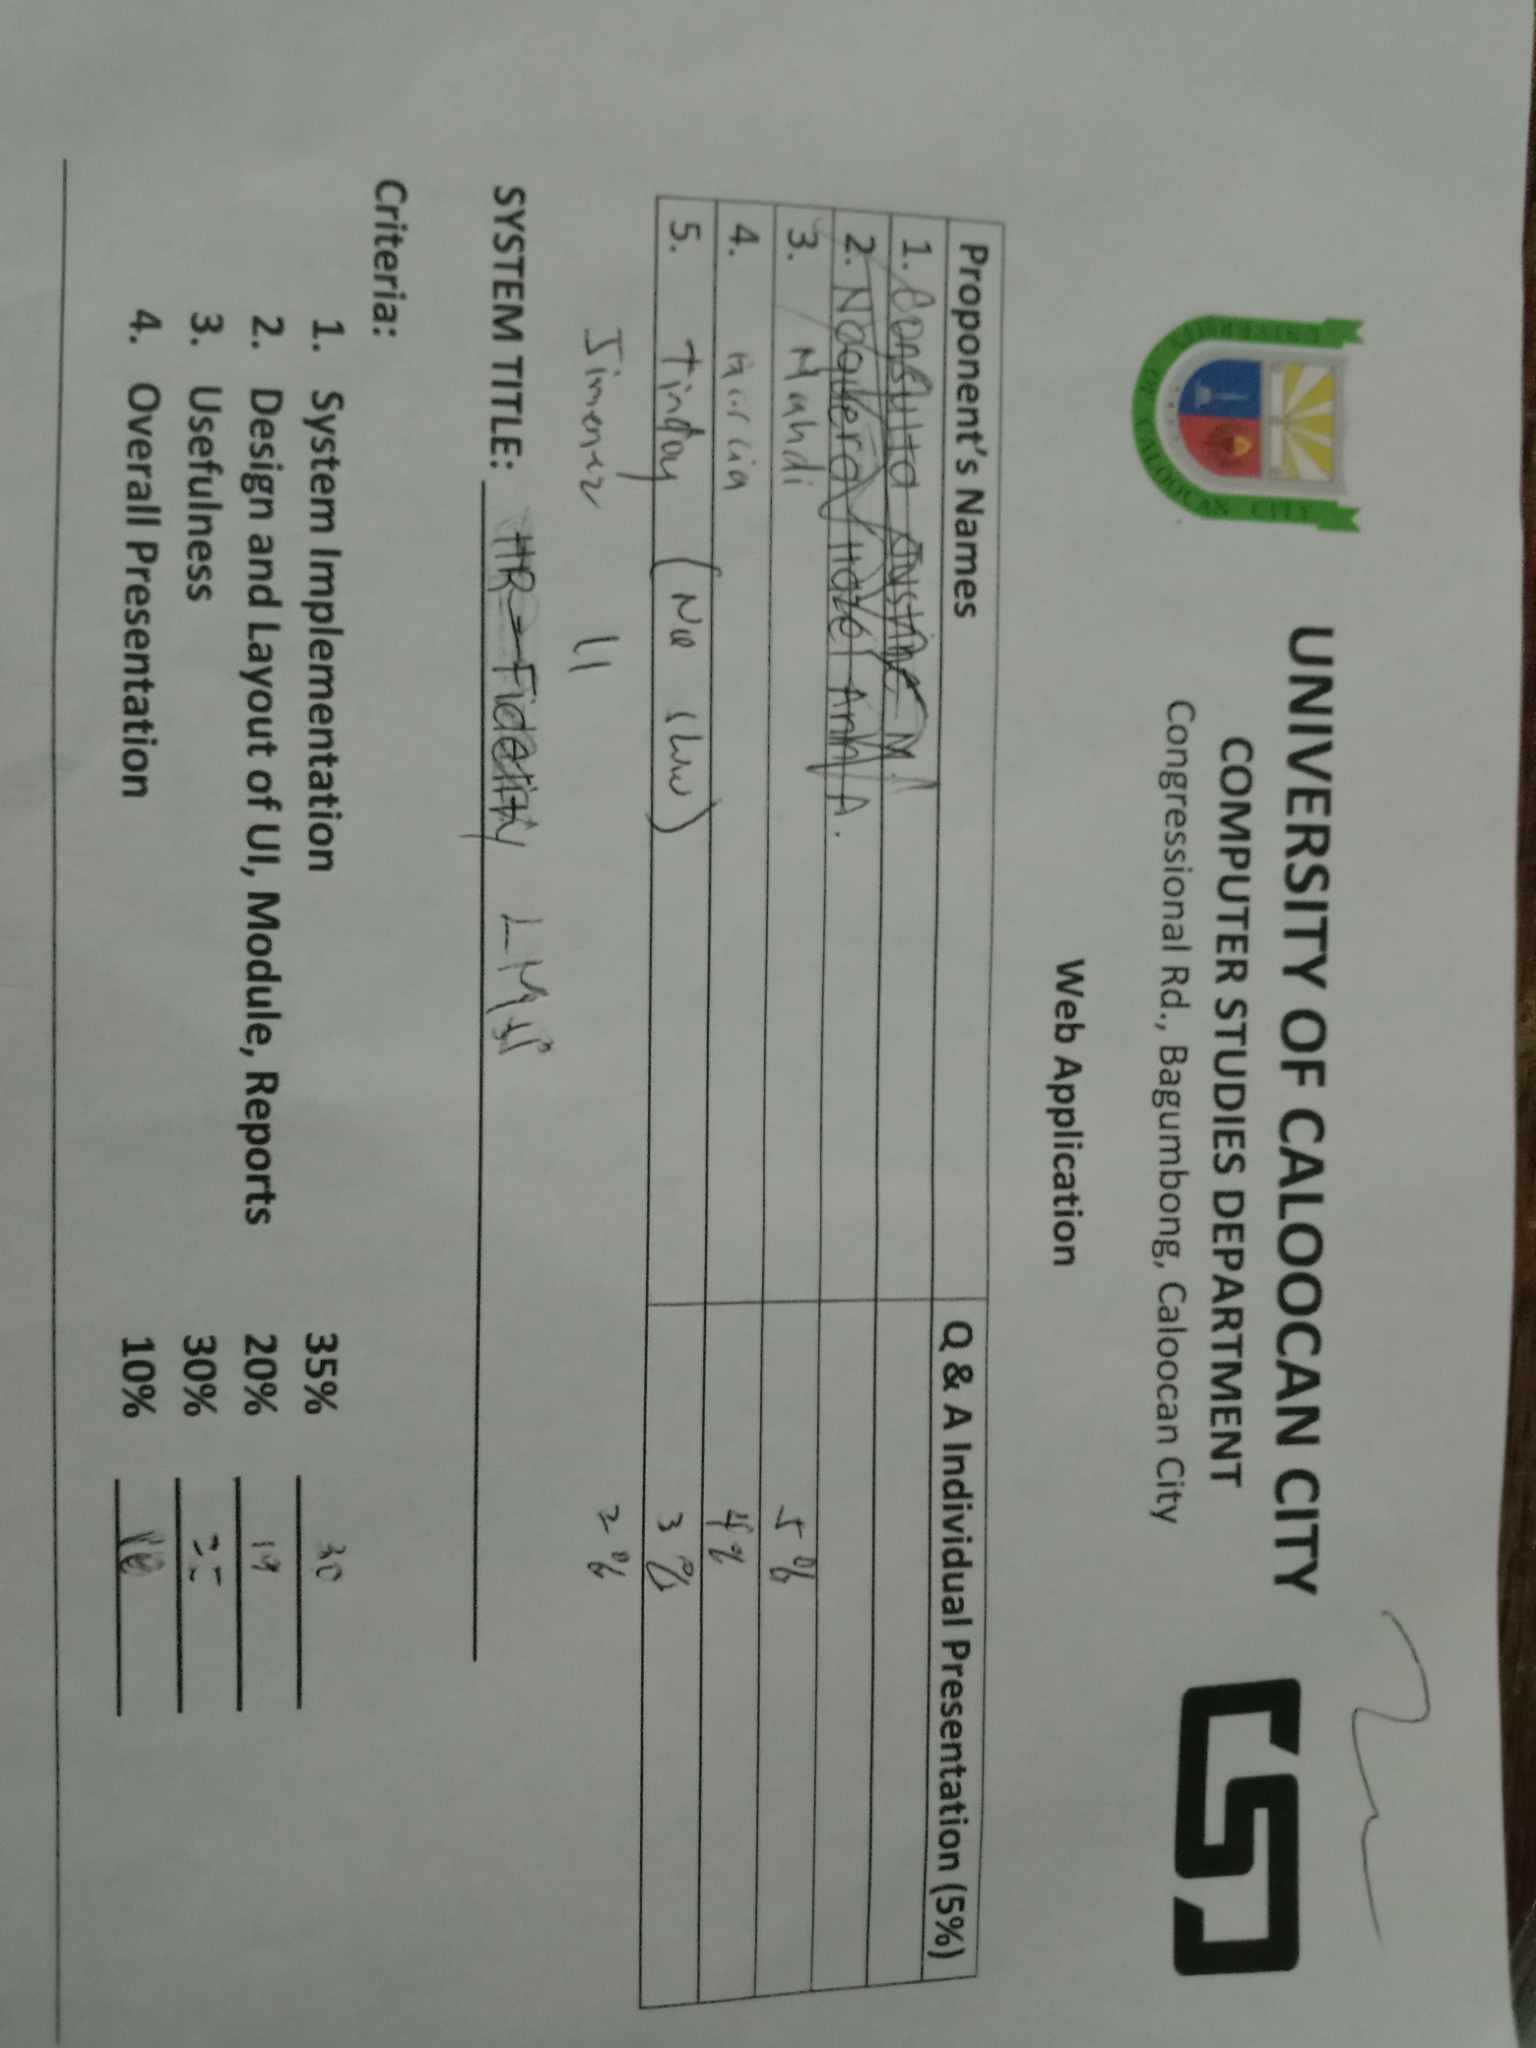 UNIVERSITY OF CALOOCAN CITY
COMPUTER STUDIES DEPARTMENT
Congressional Rd., Bagumbong, Caloocan City
UNIVERSITY OF CALOOCAN CITY
Web Application
Proponent's Names Q & A Individual Presentation (5%)
1. M.
2. Noquera Hazel Ann A.
3. Mahdi 5%
4. 4%
5. Tindoy 3%
Jimenez 11 2%
SYSTEM TITLE: HR-Fidelity LMS
Criteria:
1. System Implementation 35% 30
2. Design and Layout of UI, Module, Reports 20% 19
3. Usefulness 30% 25
4. Overall Presentation 10%